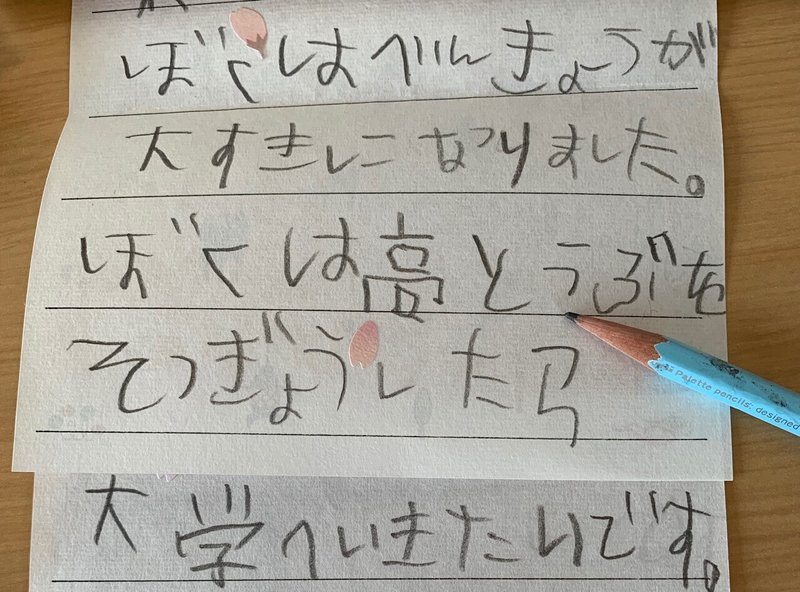 ぼくはべんきょうが
大すきになりました。
ぼくは高とうぶを
そつぎょうしたら
大学へいきたいです。
Palette pencils: designed